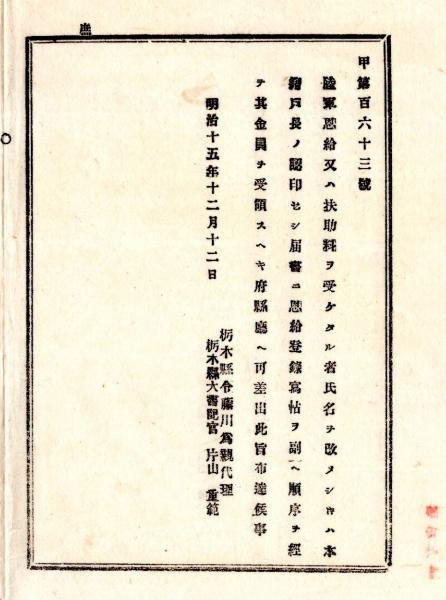 庶
甲第百六十三號
陸軍恩給又ハ扶助料ヲ受ケタル者氏名ヲ改メシ時ハ本
籍戸長ノ認印セシ届書ニ恩給登錄寫帖ヲ副ヘ順序ヲ經
テ其金員ヲ受領スヘキ府縣廳ヘ可差出此旨布達候事
明治十五年十二月十二日
栃木縣令藤川爲親代理
栃木縣大書記官 片山重範